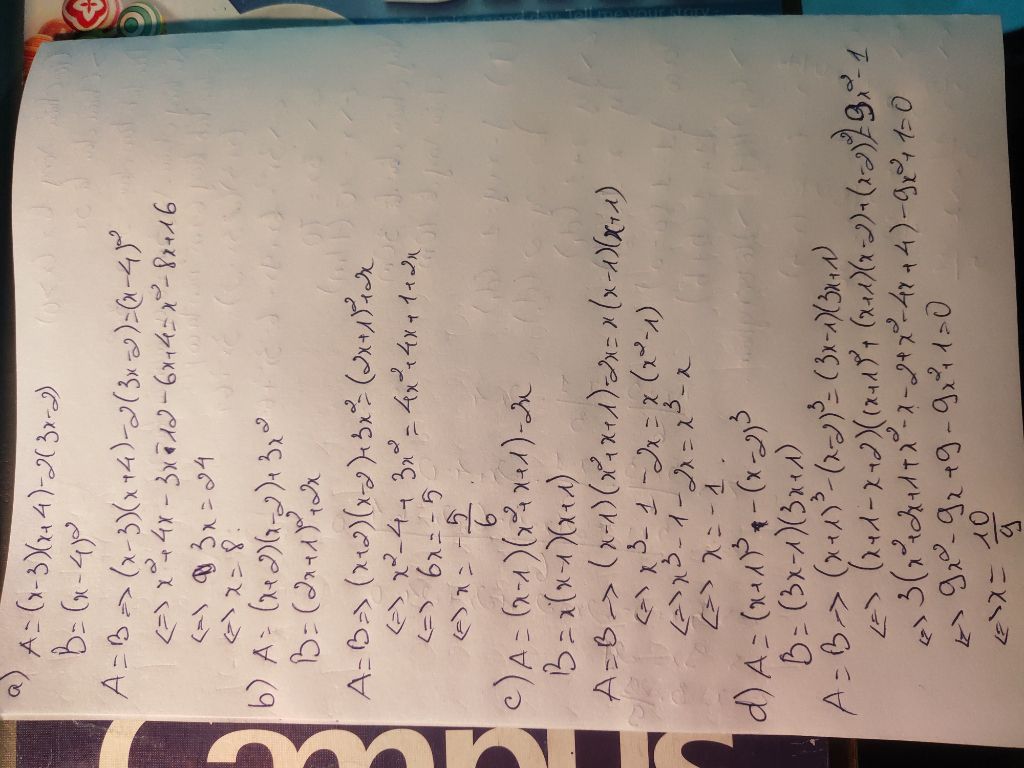 a) A = (x-3)(x+4) - 2(3x-2)
B = (x-4)²
A = B => (x-3)(x+4) - 2(3x-2) = (x-4)²
<=> x² + 4x - 3x - 12 - 6x + 4 = x² - 8x + 16
<=> 3x = 24
<=> x = 8
b) A = (x+2)(x-2) + 3x²
B = (2x+1)² + 2x
A = B => (x+2)(x-2) + 3x² = (2x+1)² + 2x
<=> x² - 4 + 3x² = 4x² + 4x + 1 + 2x
<=> 6x = -5
<=> x = -5/6
c) A = (x-1)(x²+x+1) - 2x
B = x(x-1)(x+1)
A = B => (x-1)(x²+x+1) - 2x = x(x-1)(x+1)
<=> x³ - 1 - 2x = x(x²-1)
<=> x³ - 1 - 2x = x³ - x
<=> x = -1
d) A = (x+1)³ - (x-2)³
B = (3x-1)(3x+1)
A = B => (x+1)³ - (x-2)³ = (3x-1)(3x+1)
<=> (x+1-x+2)((x+1)² + (x+1)(x-2) + (x-2)²) = 9x² - 1
<=> 3(x²+2x+1+x²-x-2+x²-4x+4) - 9x² + 1 = 0
<=> 9x² - 9x + 9 - 9x² + 1 = 0
<=> x = 10/9
Campus